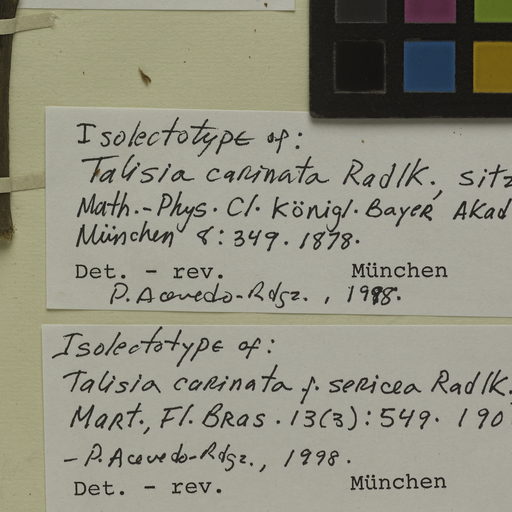 Isolectotype of:
Talisia carinata Radlk., sitz
Math.-Phys. Cl. Königl. Bayer Akad
München 8:349. 1878.
Det. - rev. München
P. Acevedo-Rdgz., 1998.
Isolectotype of:
Talisia carinata f. sericea Radlk.
Mart., Fl. Bras. 13(3):549. 190
- P. Acevedo-Rdgz., 1998.
Det. - rev. München